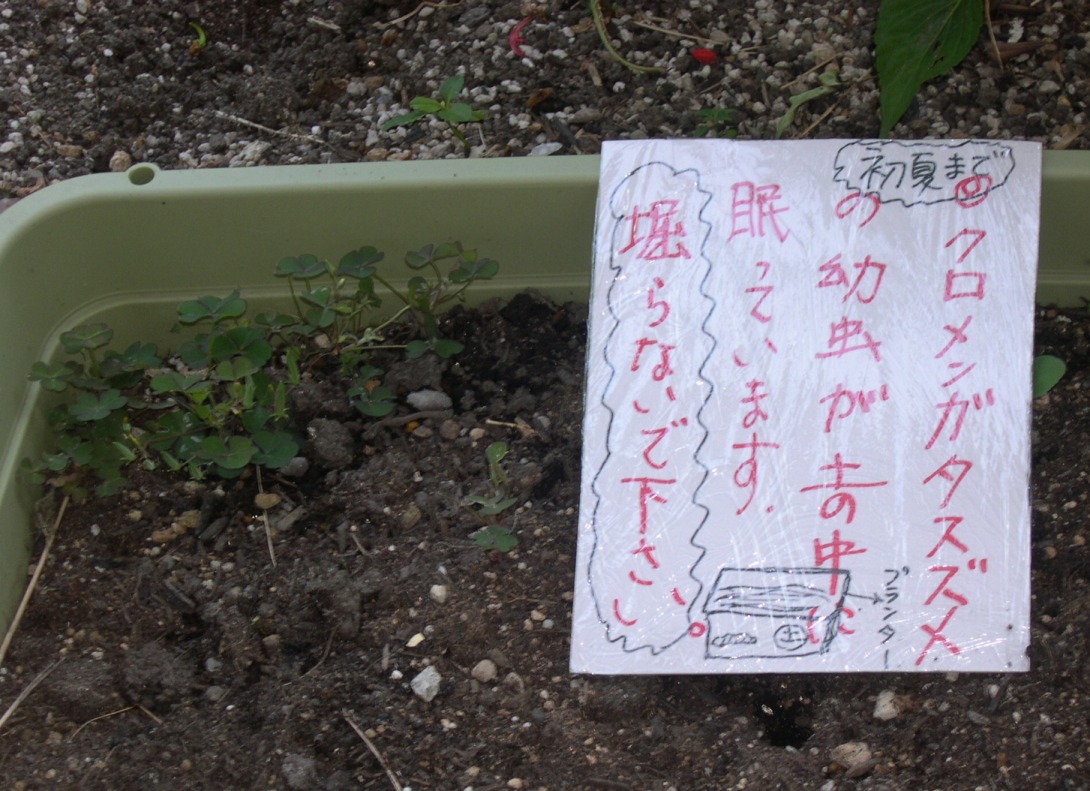 初夏まで
のクロメンガタスズメ
の幼虫が土の中に
眠っています.
堀らないで下さい。
プランター
土